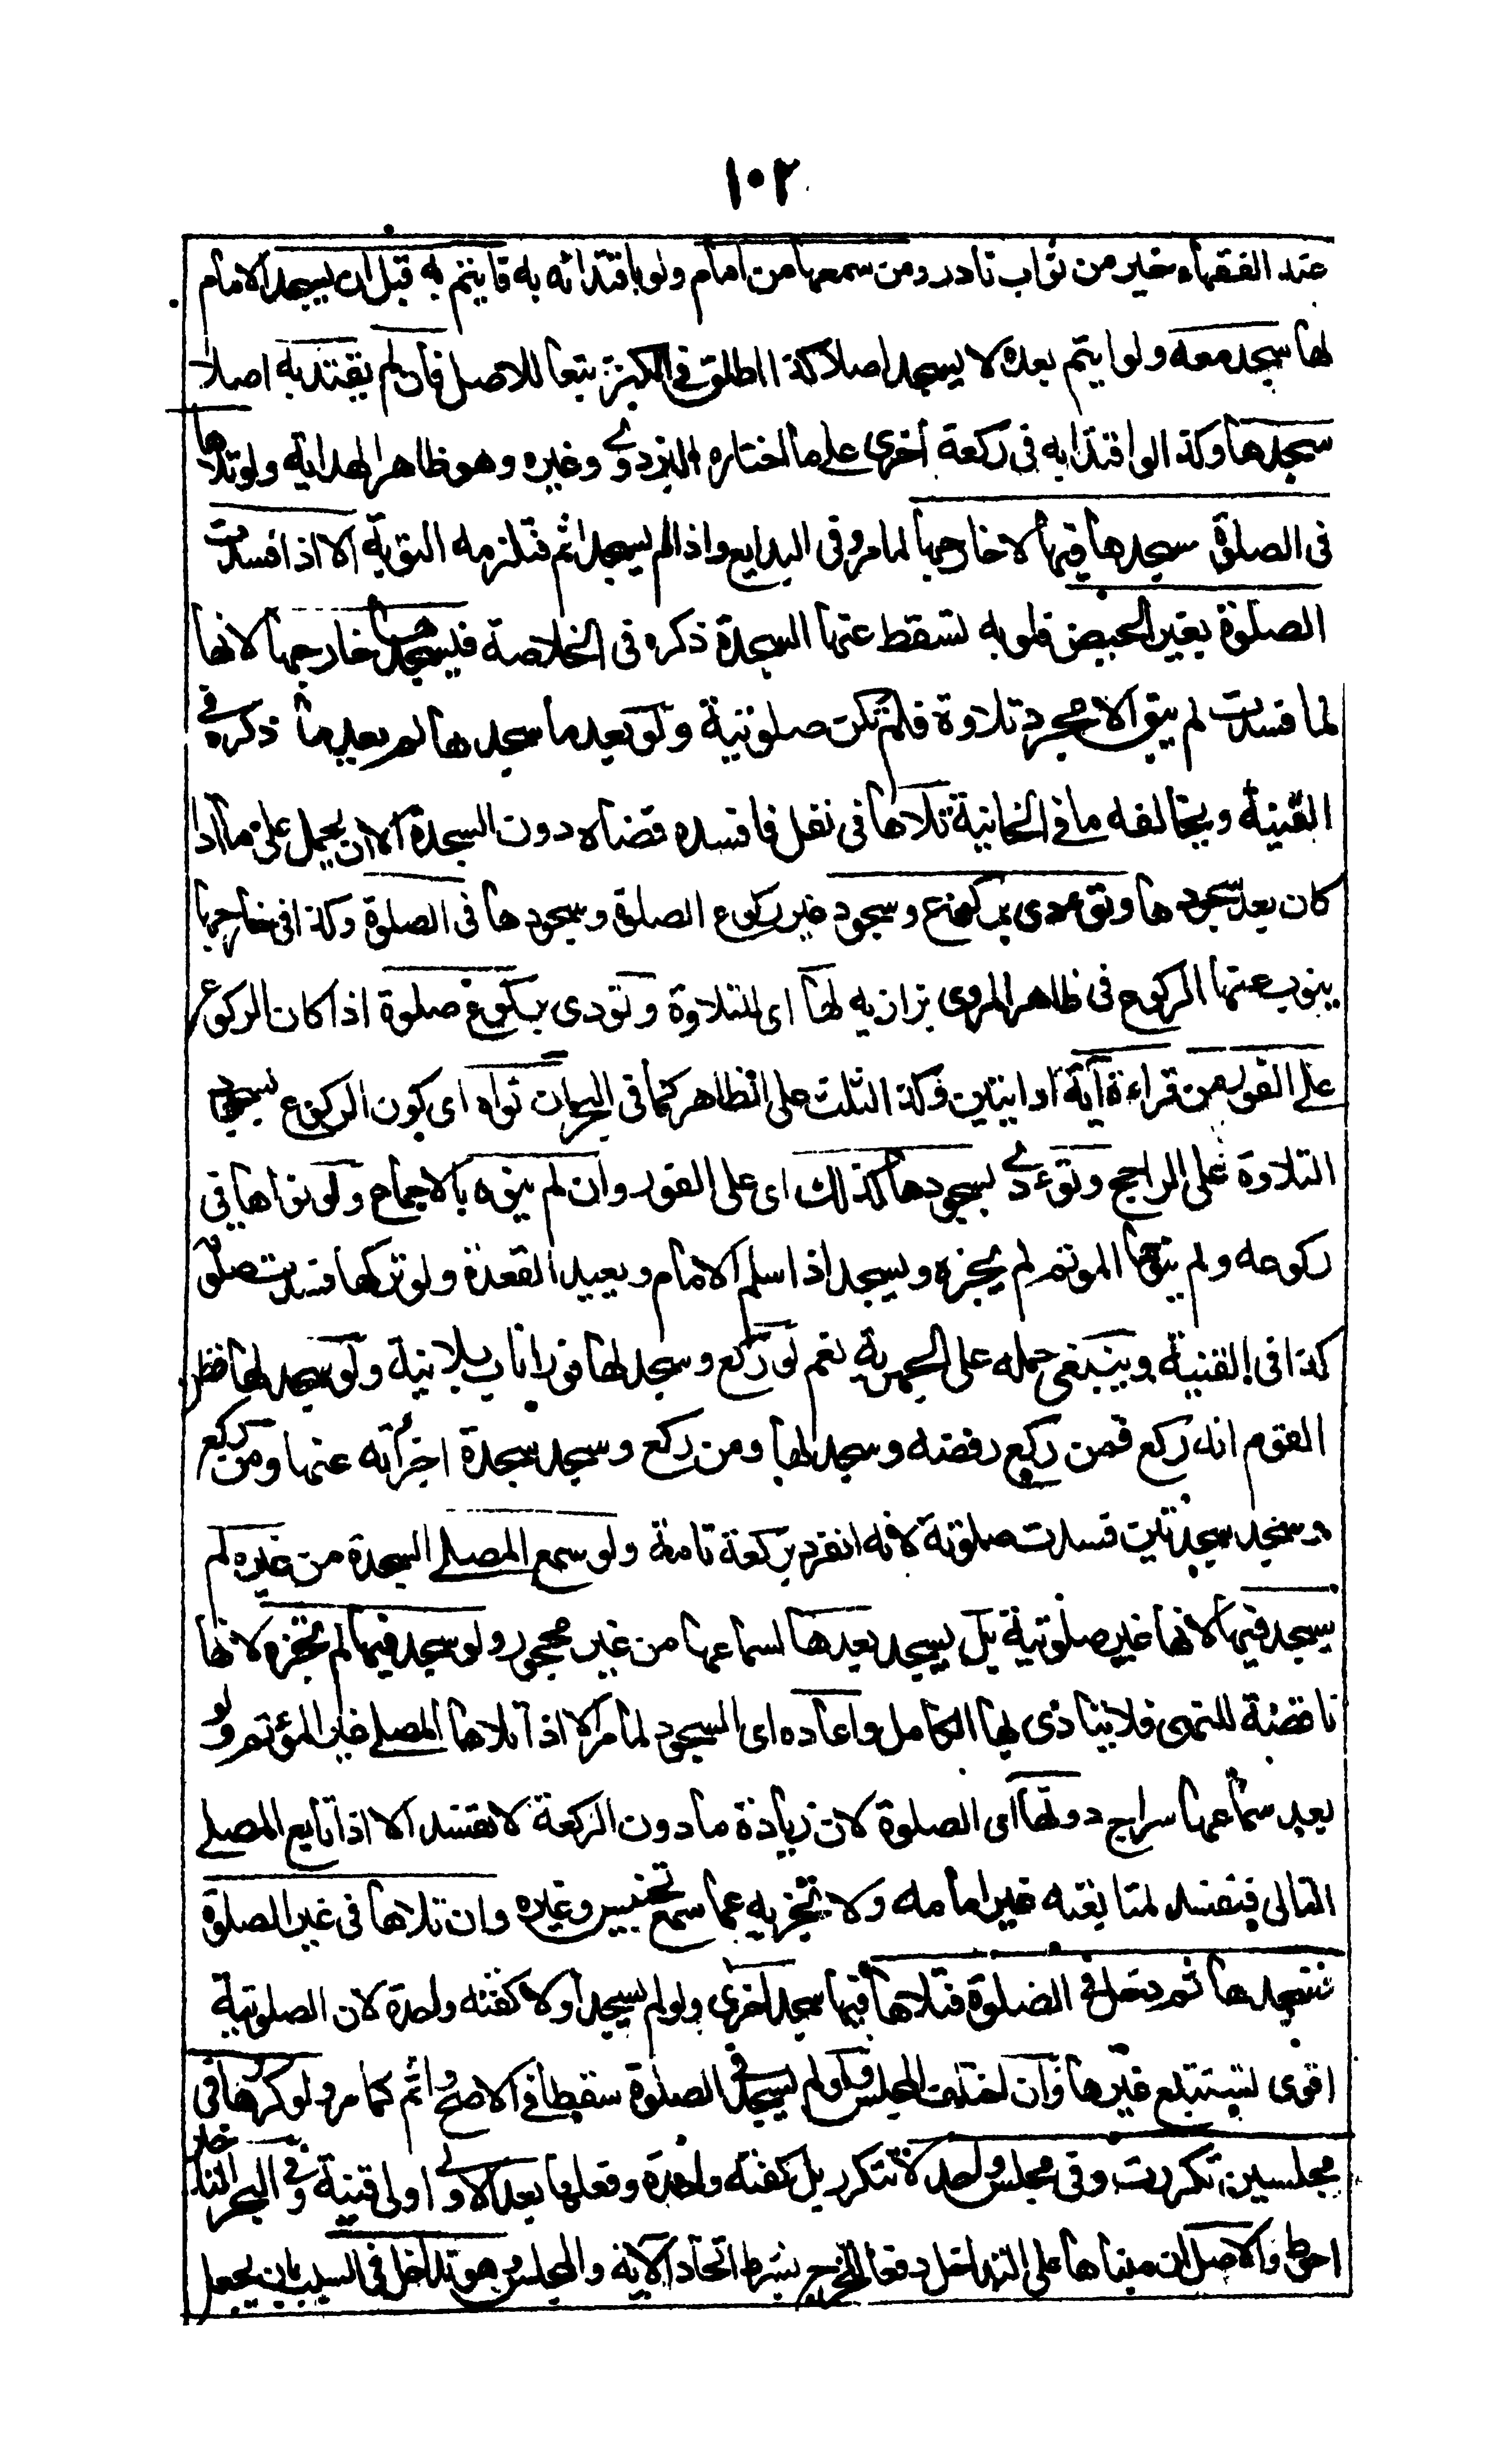 ١٠٢
عند الفقهاء خير من ثواب نادر ومن سمعها من امام ولو باقتدائه به فايتم به قبل ان يسجد الامام
لها سجد معه ولو ايتم بعده لا يسجد اصلا كذا اطلق فى الكنز تبعا للاصل فان لم يقتد به اصلا
سجدها وكذا لو اقتدا به فى ركعة أخرى على ما اختاره البزدوى وغيره وهو ظاهر الهداية ولو تلاها
فى الصلوة سجدها فيها لا خارجها لما مر وفى البدايع واذا لم يسجد اثم فتلزمه التوبة الا اذا فسدت
الصلوة بغير الحيض فلو به تسقط عنها السجدة ذكره فى الخلاصة فيسجدها خارجها لانها
لما فسدت لم يبق الا مجرد تلاوة فلم تكن صلوتية ولو بعد ما سجدها لم يعدها ذكره فى
القنية ويخالفه ما فى الخانية تلاها فى نفل فافسده قضاه دون السجدة الا ان يحمل على ما اذا
كان بعد سجودها وتؤدى بركوع وسجود غير ركوع الصلوة وسجودها فى الصلوة وكذا فى خارجها
ينوب عنها الركوع فى ظاهر المروى بزازيه لها اى للتلاوة وتودى بركوع صلوة اذا كان الركوع
على الفور من قراءة آية او ايتين وكذا الثلث على الظاهر كما فى البحر ان نواه اى كون الركوع لسجود
التلاوة على الراجح وتؤدى بسجودها كذلك اى على الفور وان لم ينوه بالاجماع ولو نواها فى
ركوعه ولم ينوها الموتم لم يجزه ويسجد اذا سلم الامام ويعيد القعدة ولو تركها فسدت صلوته
كذا فى القنية وينبغى حمله على الجهرية نعم لو ركع وسجد لها فورا ناب بلا نية ولو سجد لها فظن
القوم انه ركع فمن ركع رفضه وسجد لها ومن ركع وسجد سجدة اجزأته عنها ومن ركع
وسجد سجدتين فسدت صلوته لانه انفرد بركعة تامة ولو سمع المصلى السجدة من غيره لم
يسجد فيها لانها غير صلوتية بل يسجد بعدها لسماعها من غير محجور ولو سجد فيها لم تجزه لانها
ناقصة للنهى فلا يتادى بها الكامل واعاده اى السجود لما مر الا اذا تلاها المصلى غير المؤتم ولو
بعد سماعها سراج دونها اى الصلوة لان زيادة ما دون الركعة لا تفسد الا اذا تابع المصلى
التالى فتفسد لمتابعته غير امامه ولا تجزيه عما سمع تجنيس وغيره وان تلاها فى غير الصلوة
فسجدها ثم دخل فى الصلوة فتلاها فيها سجد اخرى ولو لم يسجد اولا كفته واحدة لان الصلوتية
اقوى فتستتبع غيرها وان اختلف المجلس ولو لم يسجد فى الصلوة سقطا فى الاصح واثم كما مر ولو كررها فى
مجلسين تكررت وفى مجلس واحد لا تتكرر بل كفته واحدة وفعلها بعد الاولى اولى قنية وفى البحر التاخير
احوط والاصل ان مبناها على التداخل دفعا للحرج بشرط اتحاد الاية والمجلس وهو تداخل فى السبب بان يجعل